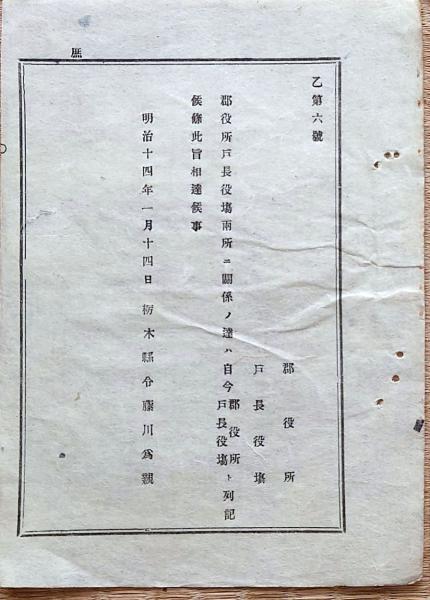 乙第六號
郡役所
戸長役塲
郡役所戸長役塲兩所ニ關係ノ達ハ自今郡役所戸長役塲ト列記
候條此旨相達候事
明治十四年一月十四日 栃木縣令藤川爲親
庶